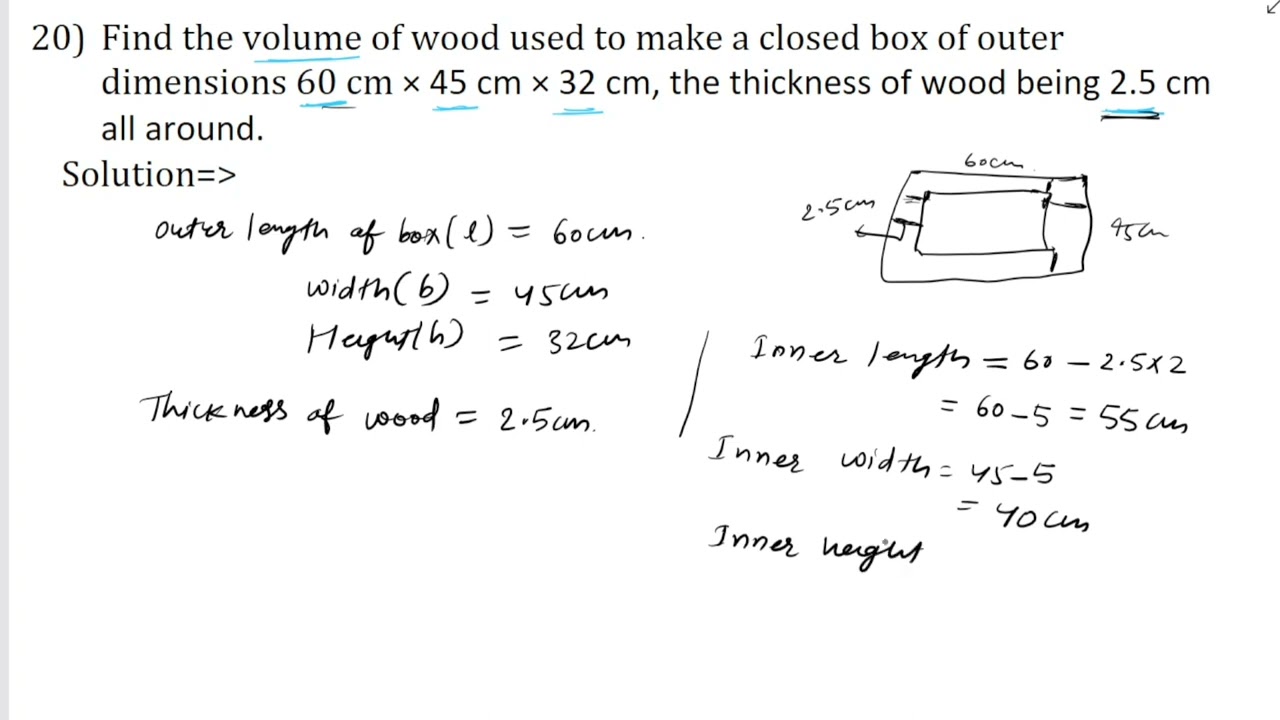 20) Find the volume of wood used to make a closed box of outer
dimensions 60 cm × 45 cm × 32 cm, the thickness of wood being 2.5 cm
all around.
Solution=>
outer length of box(l) = 60cm.
width(b) = 45cm
Height(h) = 32cm
Thickness of wood = 2.5cm.
60cm
2.5cm
45cm
Inner length = 60 - 2.5×2
= 60-5 = 55cm
Inner width = 45-5
= 40cm
Inner height